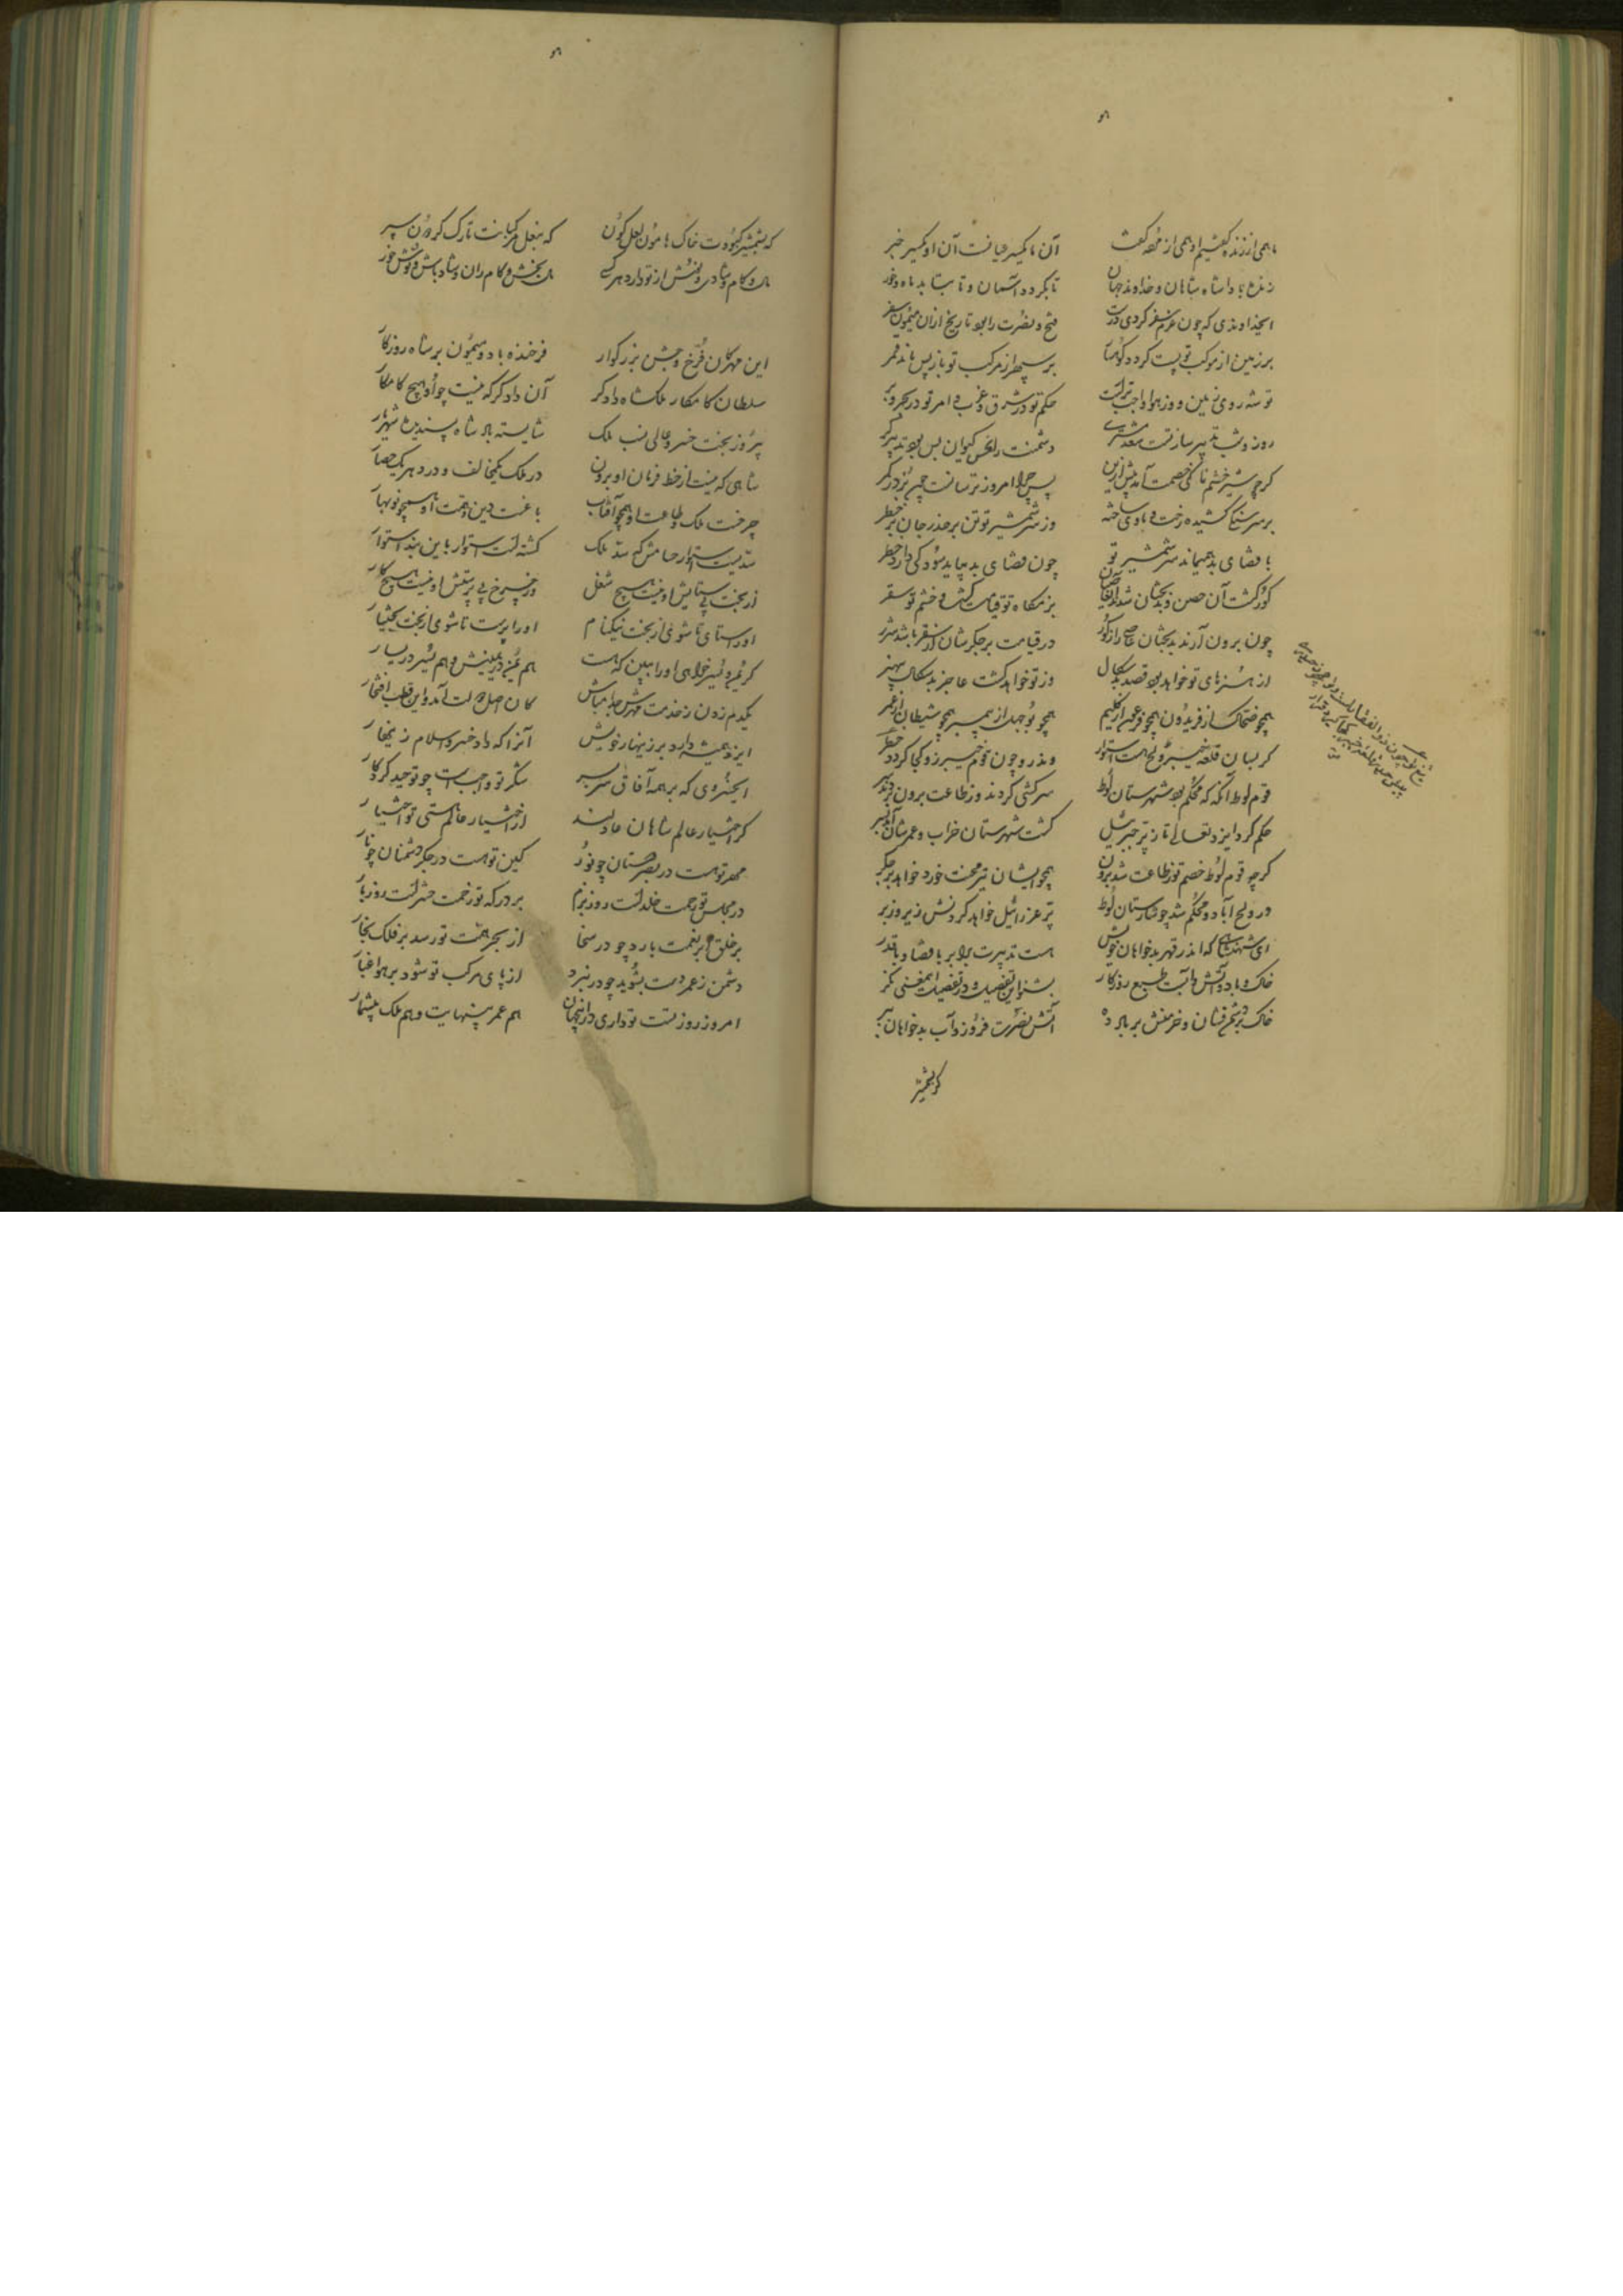 ما همی از زنده گفتیم او همی از مرده گفت آن ما یکسر عیانست آن او یکسر خبر
زنده بادا شاه شاهان و خداوند جهان تا بگردد آسمان و تا بتابد ماه و خور
ایخداوندی که چون عزم سفر کردی درست فتح و نصرت را بود تاریخ از آن میمون سفر
بر زمین از موکب تو پست گردد کوهسار بر سپهر از مرکب تو باز پس ماند قمر
تو شه روی زمین و حکم تو در شرق و غرب و امر تو در بحر و بر
روز و شب تدبیر سازت سعد مشتری دشمنت را نحس کیوان بس بود تدبیرگر
گرچه شیر خشم ناکی خصمت آمد پیش ازین پس چرا امروز ترسانست چون
بر سر سنگی کشیده رخت و مأوی ساخته وز سر شمشیر تو تن بر حذر جان بر خطر
با قضای بد همیماند سر شمشیر تو چون قضای بد بیاید سود کی دارد حذر
گور گشت آن حصن و بدبختان شدند رزمگاه تو قیامت گشت و خشم تو سقر
چون برون آرند بدبختان عاصی را ز گور در قیامت بر جگرشان از سقر باشد شرر
از هنرهای تو خواهد بود قصد بدسگال وز تو خواهد گشت عاجز بدسگال بی هنر
همچو ضحاک از فریدون همچو فرعون از کلیم همچو بوجهل از پیمبر همچو شیطان از عمر
گر بسان قلعه خیبر ولج هست استوار
تیغ تو چون ذوالفقارست و تو چون حیدری
قوم لوط آنگه که محکم بود شهرستان لوط سرکشی کردند و ز طاعت برون بردند سر
حکم کرد ایزد تعالی تا ز پر جبرئیل گشت شهرستان خراب و عمرشان آمد بسر
گرچه قوم لوط خصم تو ز طاعت شد برون همچو ایشان تیر محنت خورد خواهد بر جگر
ور ولج آباد و محکم شد چو شارستان لوط پر عزرائیل خواهد کردنش زیر و زبر
ای شهنشاهی که اندر قهر بدخواهان خویش هست تدبیرت برابر با قضا و با قدر
خاک و باد و آتش و آبست طبع روزگار بشنو این تفصیل و در تفصیل این معنی نگر
خاک بر دشمن فشان و خرمنش بر باد ده آتش نصرت فروز و آب بدخواهان ببر
که بشمشیر کبودت خاک هامون لعل گون که بنعل مرکبانت تارک گردون سپر
ناز و کام و شادی و بخشش از تو دارد هر کسی ناز بخش و کام ران و شاد باش و نوش خور
این مهرگان فرخ و جشن بزرگوار فرخنده باد و میمون بر شاه روزگار
سلطان کامکار ملکشاه دادگر آن دادگر که نیست چو او هیچ کامکار
پیروز بخت خسرو عالی نسب ملک شایسته پادشاه پسندیده شهریار
شاهی که نیست از خط فرمان او برون در ملک یک مخالف و در دهر یک حصار
چرخست ملک و طاعت او همچو آفتاب باغست دین و همت او همچو نوبهار
سدیست استوار حسامش که سد ملک گشته است استوار باین بند استوار
نز بخت بی ستایش او نیست هیچ شغل وز چرخ بی پرستش او نیست هیچ کار
او را ستای تا شوی از بخت نیکنام او را پرست تا شوی از بخت بختیار
گر یمن و یسر خواهی او را ببین که هست هم یمن در یمینش و هم یسر در یسار
یکدم زدن ز خدمت مهرش جدا مباش کان اصل دولت آمد و این قطب افتخار
ایزد همیشه دارد بر زینهار خویش آنرا که داد خسرو اسلام زینهار
ایخسروی که بر همه آفاق سر بسر شکر تو واجبست چو توحید کردگار
گر اختیار عالم شاهان عادلند از اختیار عالم هستی تو اختیار
مهر تو هست در بصر دوستان چو نور کین تو هست در جگر دشمنان چو نار
در مجلس تو رحمت خلد است روز بزم بر درگه تو زحمت حشر است روز بار
بر خلق ابر نعمت بارد چو در سخا از بحر همت تو رسد بر فلک بخار
دشمن ز عمر دست بشوید چو در نبرد از پای مرکب تو شود بر هوا غبار
امروز روز تست تو داری در این جهان هم عمر بینهایت و هم ملک بیشمار